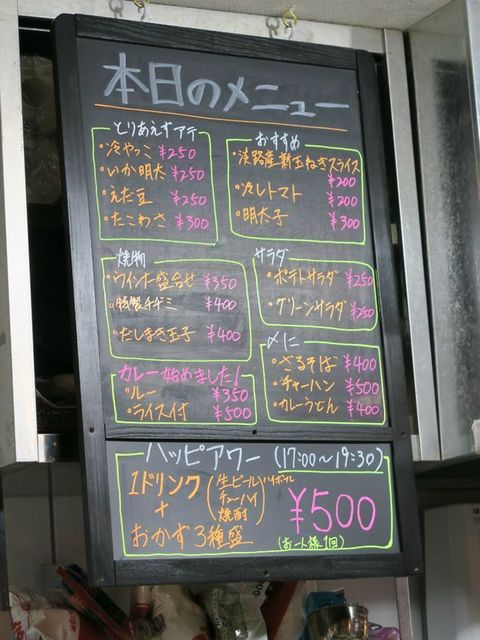 本日のメニュー
とりあえずアテ
・冷やっこ ¥250
・いか明太 ¥250
・えだ豆 ¥250
・たこわさ ¥300
おすすめ
・淡路産新玉ねぎスライス
¥200
・冷しトマト ¥200
・明太子 ¥300
焼物
・ウインナー盛合せ ¥350
・特製チヂミ ¥400
・だしまき玉子 ¥400
サラダ
・ポテトサラダ ¥250
・グリーンサラダ ¥250
カレー始めました!
・ルー ¥350
・ライス付 ¥500
〆に
・ざるそば ¥400
・チャーハン ¥500
・カレーうどん ¥400
ハッピアワー (17:00〜19:30)
1ドリンク (生ビール ハイボール
チューハイ
焼酎)
+
おかず3種盛
¥500
(お一人様1回)